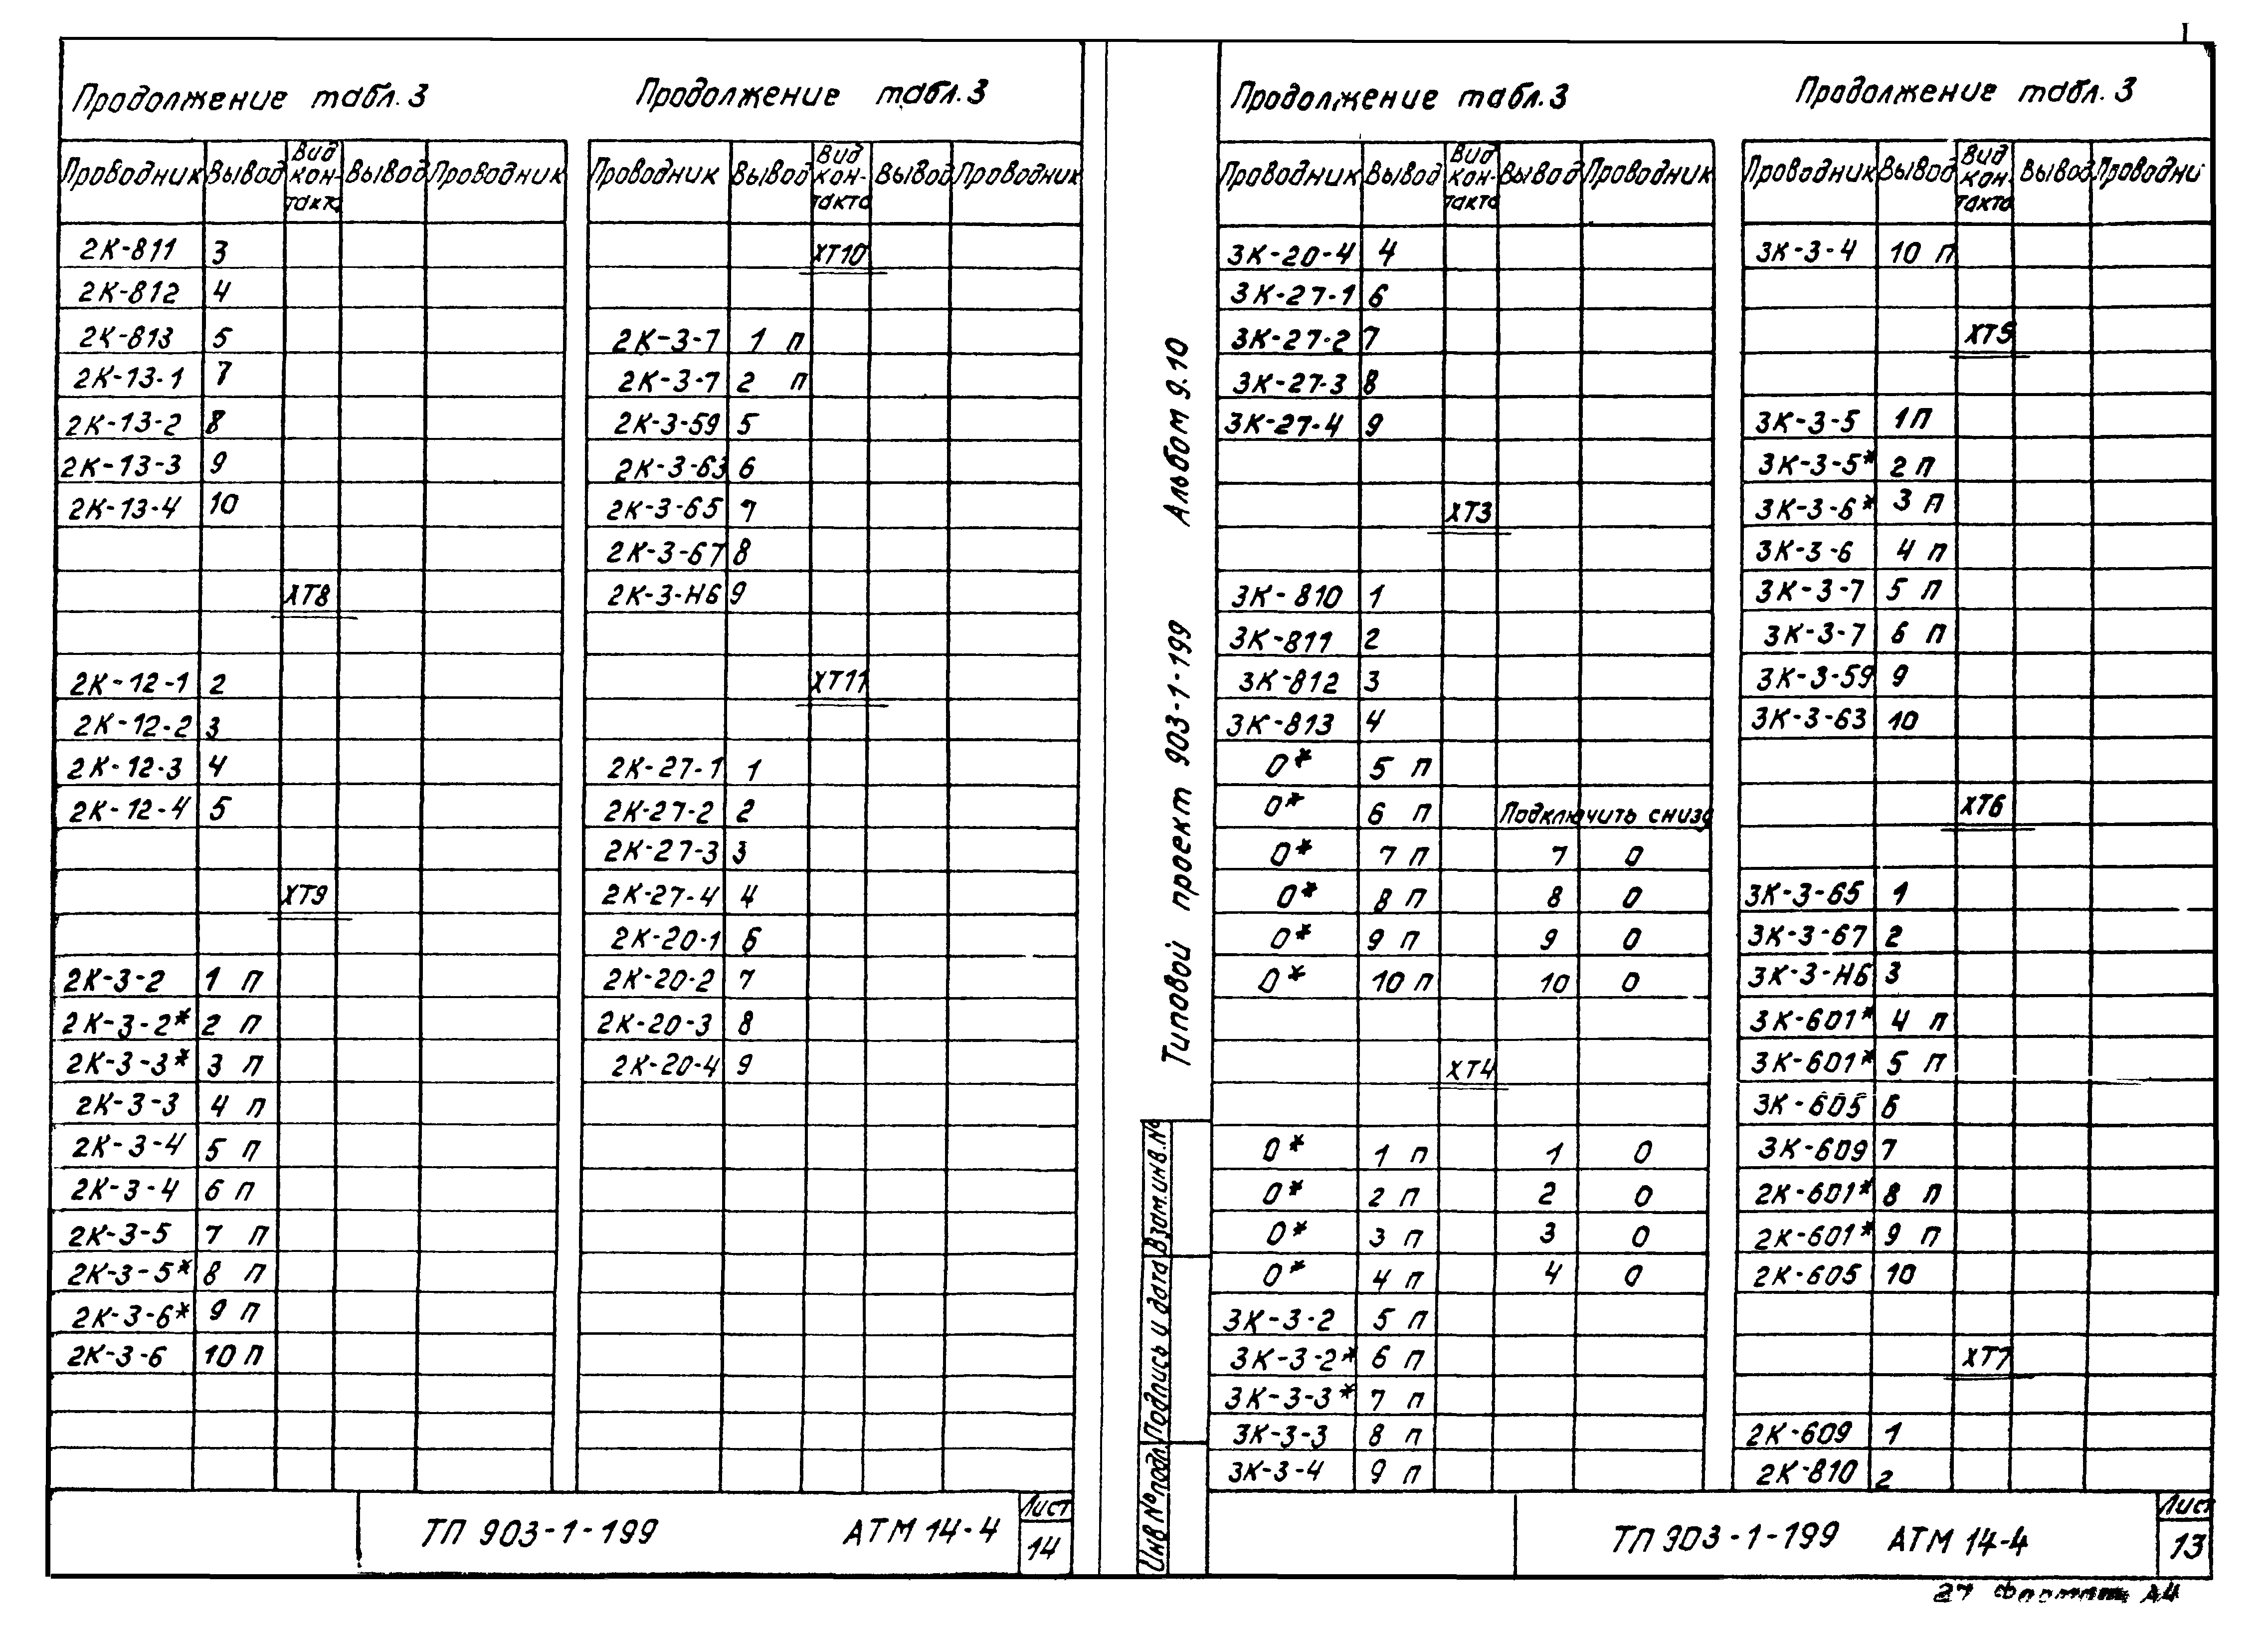 Продолжение табл.3
Проводник Вывод Вид контакта Вывод Проводник
2К-811 3
2К-812 4
2К-813 5
2К-13-1 7
2К-13-2 8
2К-13-3 9
2К-13-4 10
ХТ8
2К-12-1 2
2К-12-2 3
2К-12-3 4
2К-12-4 5
ХТ9
2К-3-2 1 П
2К-3-2* 2 П
2К-3-3* 3 П
2К-3-3 4 П
2К-3-4 5 П
2К-3-4 6 П
2К-3-5 7 П
2К-3-5* 8 П
2К-3-6* 9 П
2К-3-6 10 П
Продолжение табл.3
Проводник Вывод Вид контакта Вывод Проводник
ХТ10
2К-3-7 1 П
2К-3-7 2 П
2К-3-59 5
2К-3-63 6
2К-3-65 7
2К-3-67 8
2К-3-Н6 9
ХТ11
2К-27-1 1
2К-27-2 2
2К-27-3 3
2К-27-4 4
2К-20-1 6
2К-20-2 7
2К-20-3 8
2К-20-4 9
ТП 903-1-199 АТМ 14-4
Лист
14
Альбом 9.10
Типовой проект 903-1-199
Взам.инв.№
Подпись и дата
Инв № подл.
Продолжение табл.3
Проводник Вывод Вид контакта Вывод Проводник
3К-20-4 4
3К-27-1 6
3К-27-2 7
3К-27-3 8
3К-27-4 9
ХТ3
3К-810 1
3К-811 2
3К-812 3
3К-813 4
0* 5 П
0* 6 П Подключить снизу
0* 7 П 7 0
0* 8 П 8 0
0* 9 П 9 0
0* 10 П 10 0
ХТ4
0* 1 П 1 0
0* 2 П 2 0
0* 3 П 3 0
0* 4 П 4 0
3К-3-2 5 П
3К-3-2* 6 П
3К-3-3* 7 П
3К-3-3 8 П
3К-3-4 9 П
Продолжение табл.3
Проводник Вывод Вид контакта Вывод Проводни
3К-3-4 10 П
ХТ5
3К-3-5 1П
3К-3-5* 2 П
3К-3-6* 3 П
3К-3-6 4 П
3К-3-7 5 П
3К-3-7 6 П
3К-3-59 9
3К-3-63 10
ХТ6
3К-3-65 1
3К-3-67 2
3К-3-Н6 3
3К-601* 4 П
3К-601* 5 П
3К-605 6
3К-609 7
2К-601* 8 П
2К-601* 9 П
2К-605 10
ХТ7
2К-609 1
2К-810 2
ТП 903-1-199 АТМ 14-4
Лист
13
27 Формат А4